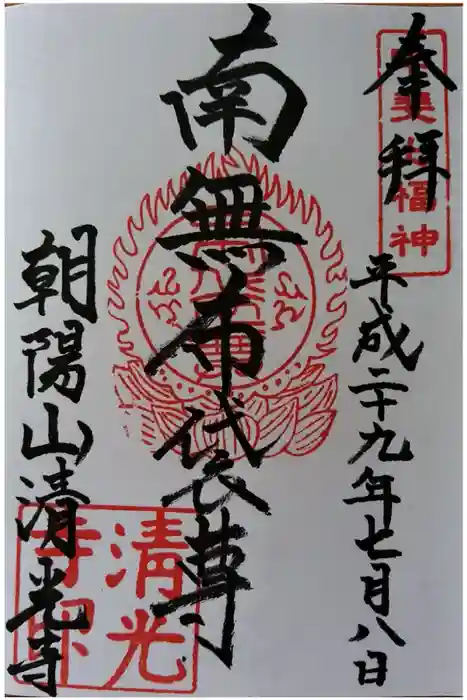 奉拝
平成二十九年七月八日
南無布袋尊
朝陽山清光寺
福神
清光
寺印